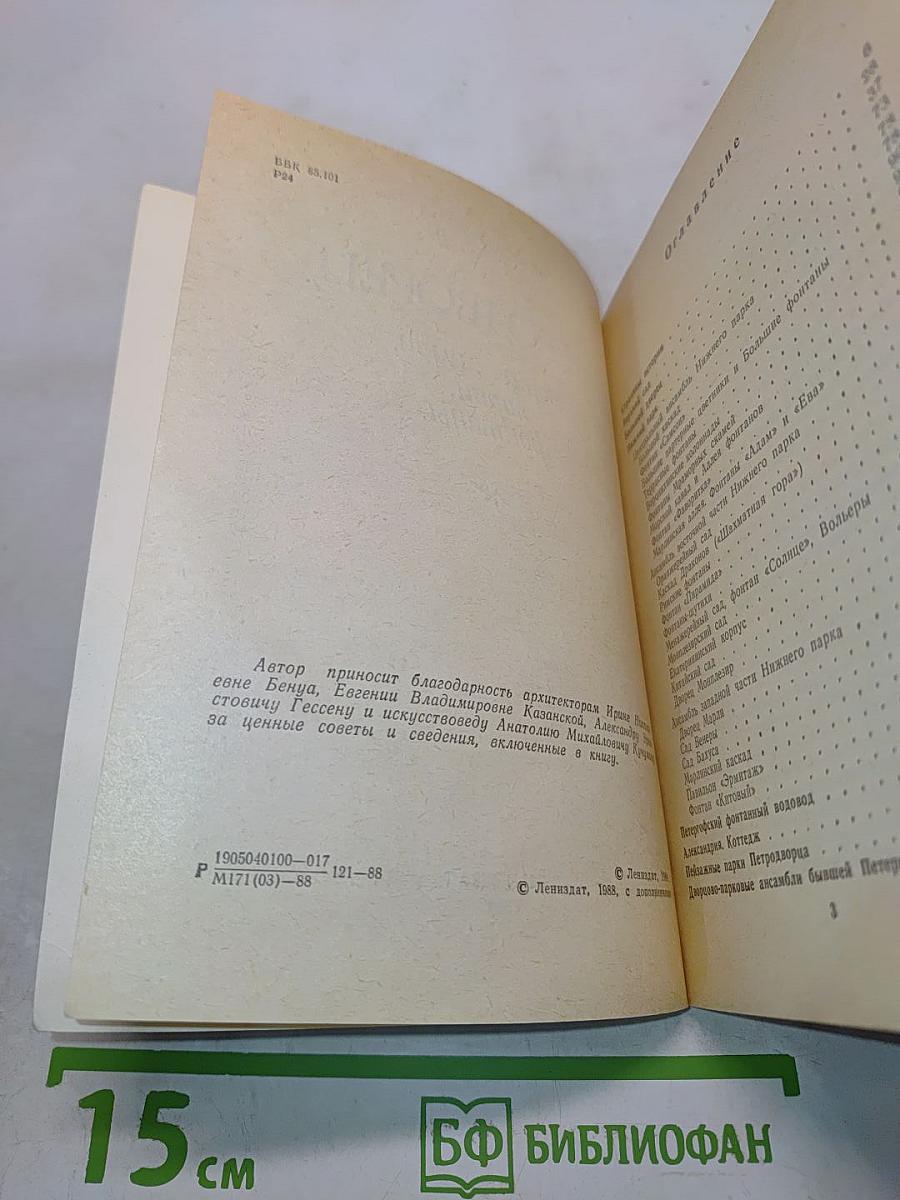 ББК 85.101
Р24
Автор приносит благодарность архитекторам Ирине
евне Бенуа, Евгении Владимировне Казанской, Александру
стовичу Гессену и искусствоведу Анатолию Михайловичу
за ценные советы и сведения, включенные в книгу.
Р 1905040100—017 121—88
М171(03)—88
© Лениздат,
© Лениздат, 1988, с
Оглавление
ансамбль Нижнего парка
партерные цветники и Большие фонтаны
Воронихинские колоннады
Фонтаны Мраморных скамей
Морской канал и Аллея фонтанов
Фонтан «Фаворитка»
Марлинская аллея. Фонтаны «Адам» и «Ева»
Ансамбль восточной части Нижнего парка
Оранжерейный сад
Каскад Драконов («Шахматная гора»)
Римские фонтаны
Фонтан «Пирамида»
Фонтаны-шутихи
Менажерейный сад, фонтан «Солнце», Вольеры
Монплезирский сад
Екатерининский корпус
Китайский сад
Дворец Монплезир
Ансамбль западной части Нижнего парка
Дворец Марли
Сад Венеры
Сад Бахуса
Марлинский каскад
Павильон «Эрмитаж»
Фонтан «Китовый»
Петергофский фонтанный водовод
Александрия. Коттедж
Пейзажные парки Петродворца
Дворцово-парковые ансамбли бывшей
3
15 см
БФ БИБЛИОФАН